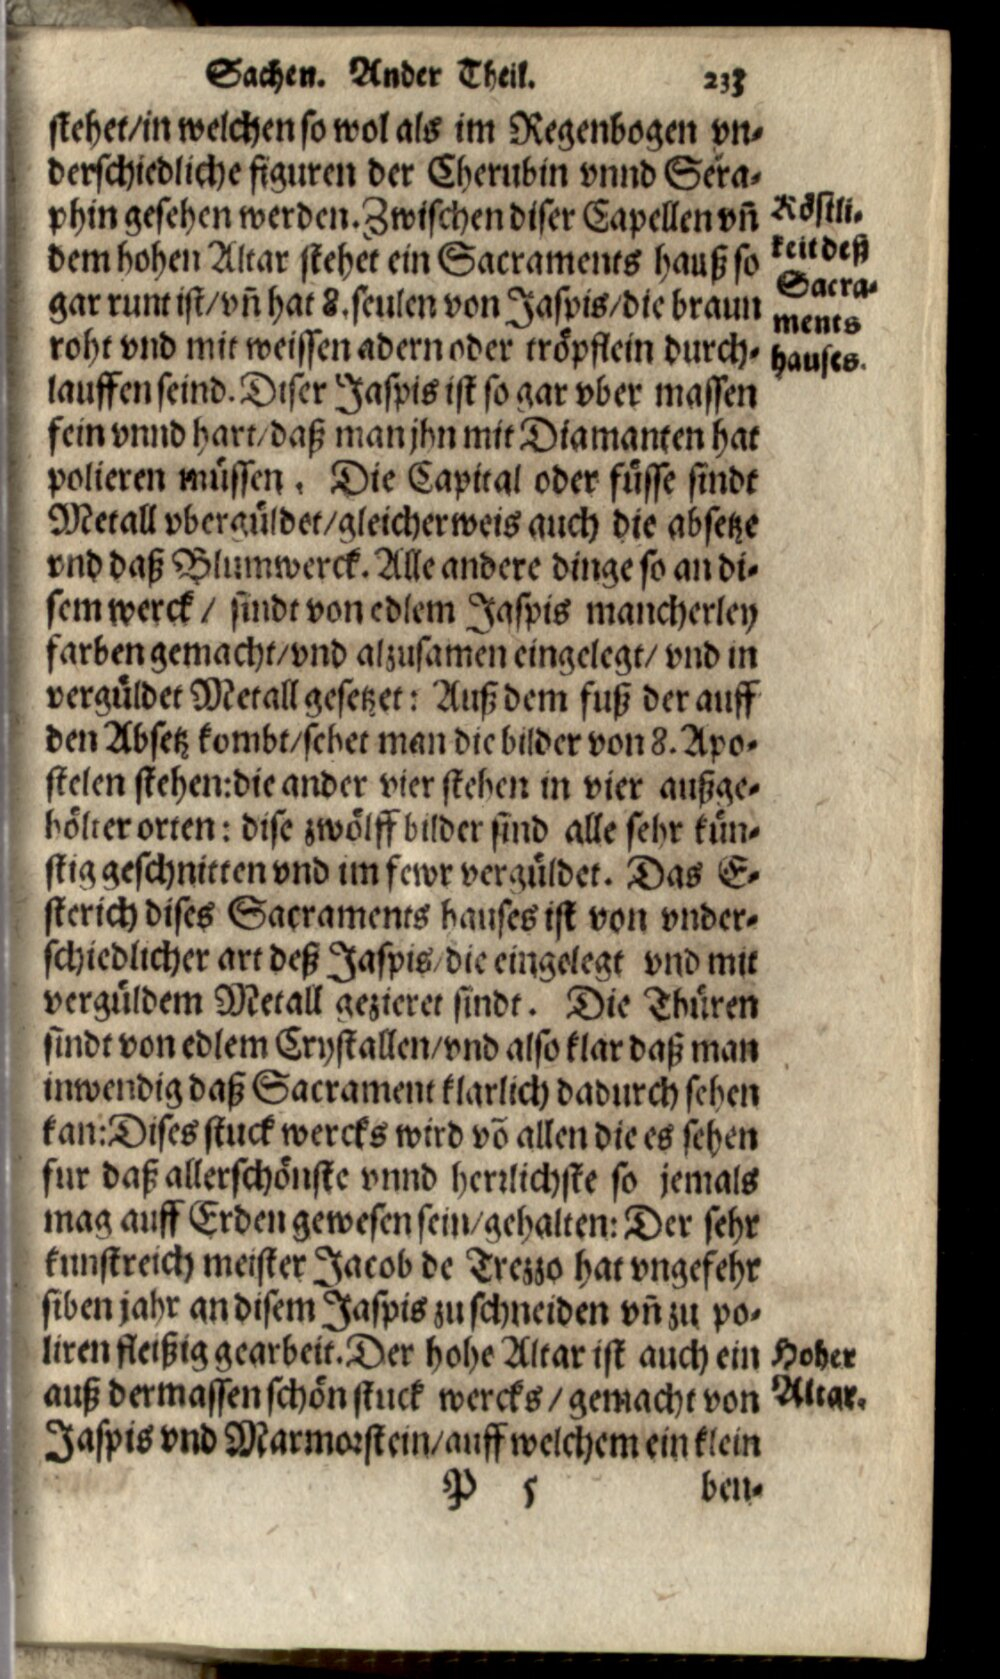 Sachen. Ander Theil. 233
stehet/in welchen so wol als im Regenbogen vn-
derschiedliche figuren der Cherubin vnnd Sera-
phin gesehen werden. Zwischen diser Capellen vñ
dem hohen Altar stehet ein Sacraments hauß so
gar runt ist/vñ hat 8. seulen von Jaspis/die braun
roht vnd mit weissen adern oder tröpflein durch-
lauffen seind. Diser Jaspis ist so gar vber massen
fein vnnd hart/daß man jhn mit Diamanten hat
polieren müssen. Die Capital oder füsse sindt
Metall vbergüldet/gleicher weis auch die absetze
vnd daß Blumwerck. Alle andere dinge so an di-
sem werck / sindt von edlem Jaspis mancherley
farben gemacht/vnd alzusamen eingelegt/ vnd in
vergüldet Metall gesetzet: Auß dem fuß der auff
den Absetz kombt/sehet man die bilder von 8. Apo-
stelen stehen: die ander vier stehen in vier außge-
hölter orten: dise zwölff bilder sind alle sehr kün-
stig geschnitten vnd im fewr vergüldet. Das E-
sterich dises Sacraments hauses ist von vnder-
schiedlicher art deß Jaspis/die eingelegt vnd mit
vergüldem Metall gezieret sindt. Die Thüren
sindt von edlem Crystallen/vnd also klar daß man
inwendig daß Sacrament klarlich dadurch sehen
kan: Dises stuck wercks wird võ allen die es sehen
fur daß allerschönste vnnd herrlichste so jemals
mag auff Erden gewesen sein/gehalten: Der sehr
kunstreich meister Jacob de Trezzo hat vngefehr
siben jahr an disem Jaspis zu schneiden vñ zu po-
liren fleißig gearbeit. Der hohe Altar ist auch ein
auß dermassen schön stuck wercks / gemacht von
Jaspis vnd Marmorstein/auff welchem ein klein
P 5 ben-
Köstli-
keit deß
Sacra-
ments
hauses.
Hoher
Altar.